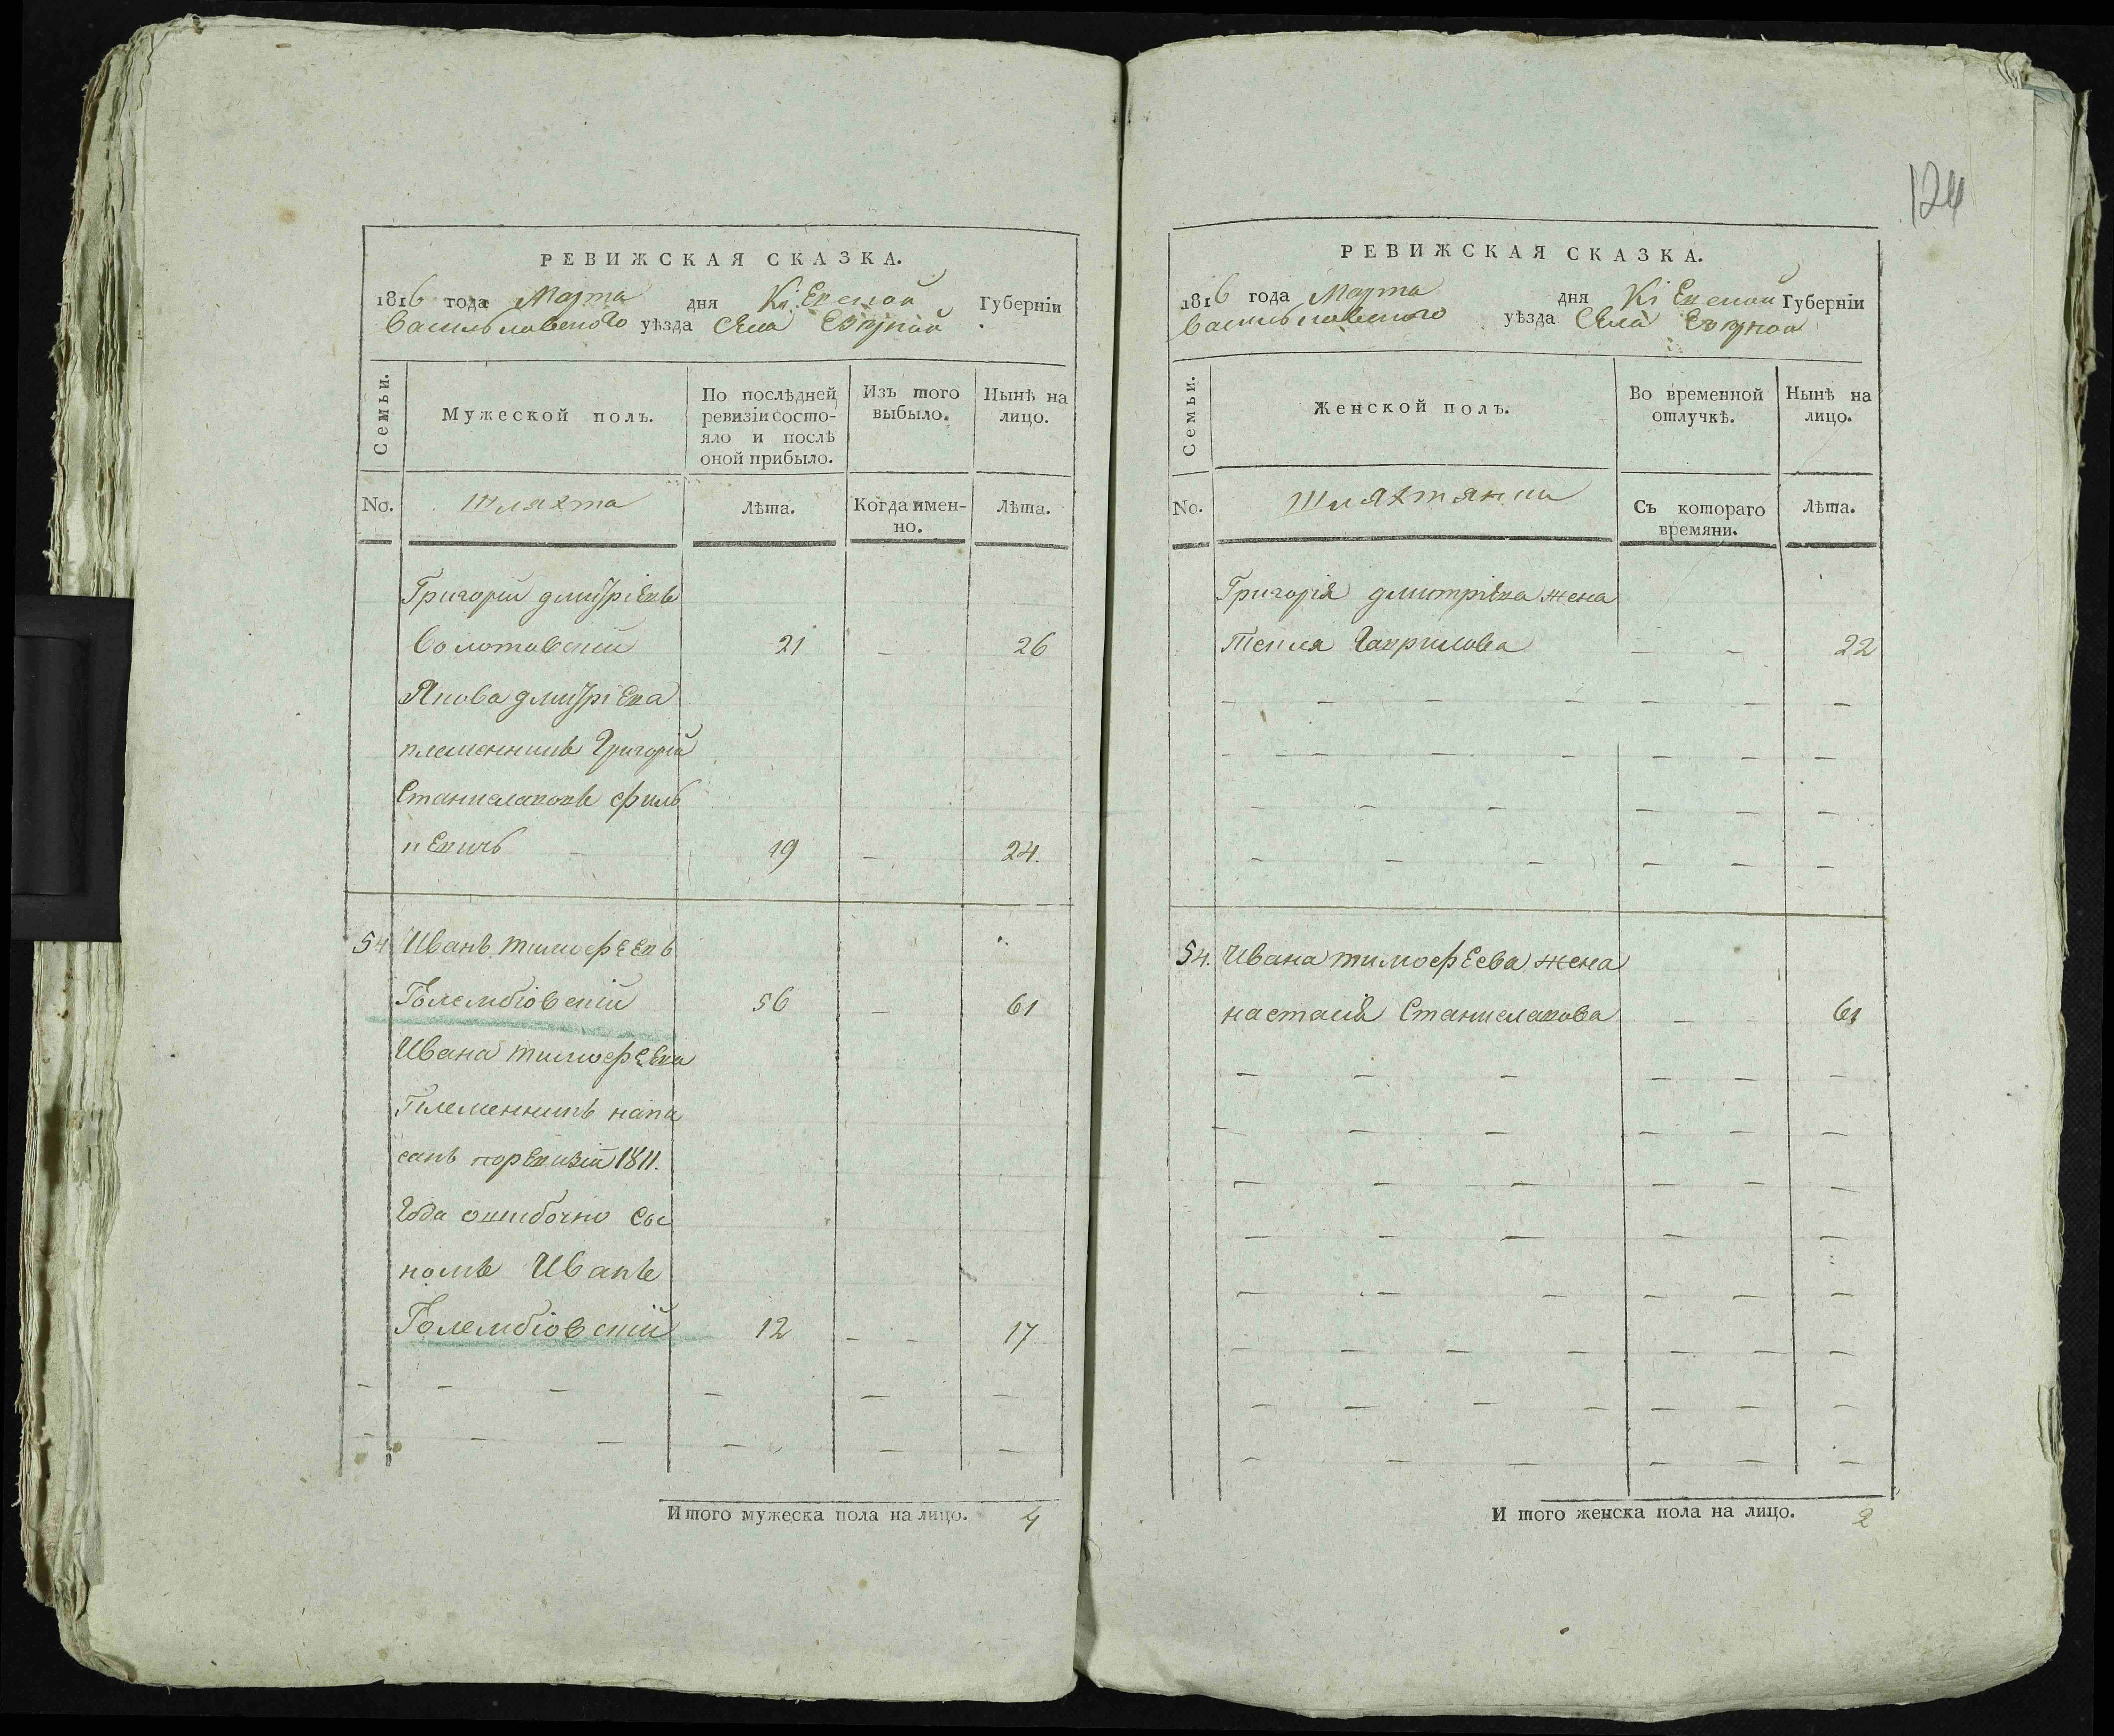 124
РЕВИЖСКАЯ СКАЗКА.
1816 года Марта дня Кіевской Губерніи
Васильковского уѣзда Села
Семьи.
Мужеской полъ.
По послѣдней ревизіи состо-
яло и послѣ
оной прибыло.
Изъ того
выбыло.
Нынѣ на
лицо.
No.
Шляхта
Лѣта.
Когда имен-
но.
Лѣта.
Григорій Дмитріевъ
21 — 26
Якова Дмитріева
племенникъ Григорій
Станиславовъ Филь
кевичъ — 19 — 24.
54 Иванъ Тимофеевъ
Голембіовскій 56 — 61
Ивана Тимофеева
Племенникъ напи
санъ поревизіи 1811.
Года ошибочно Сы
номъ Иванъ
Голембіовскій 12 — - 17
Итого мужеска пола на лицо. 4
РЕВИЖСКАЯ СКАЗКА.
1816 года Марта дня Кіевской Губерніи
Васильковского уѣзда Села
Семьи.
Женской полъ.
Во временной
отлучкѣ.
Нынѣ на
лицо.
No.
Шляхтянки
Съ котораго
времяни.
Лѣта.
Григорія Дмитріева жена
Текля Гаврилова — - 22
54. Ивана Тимофеева жена
Настасія Станиславова — - 61
Итого женска пола на лицо. 2